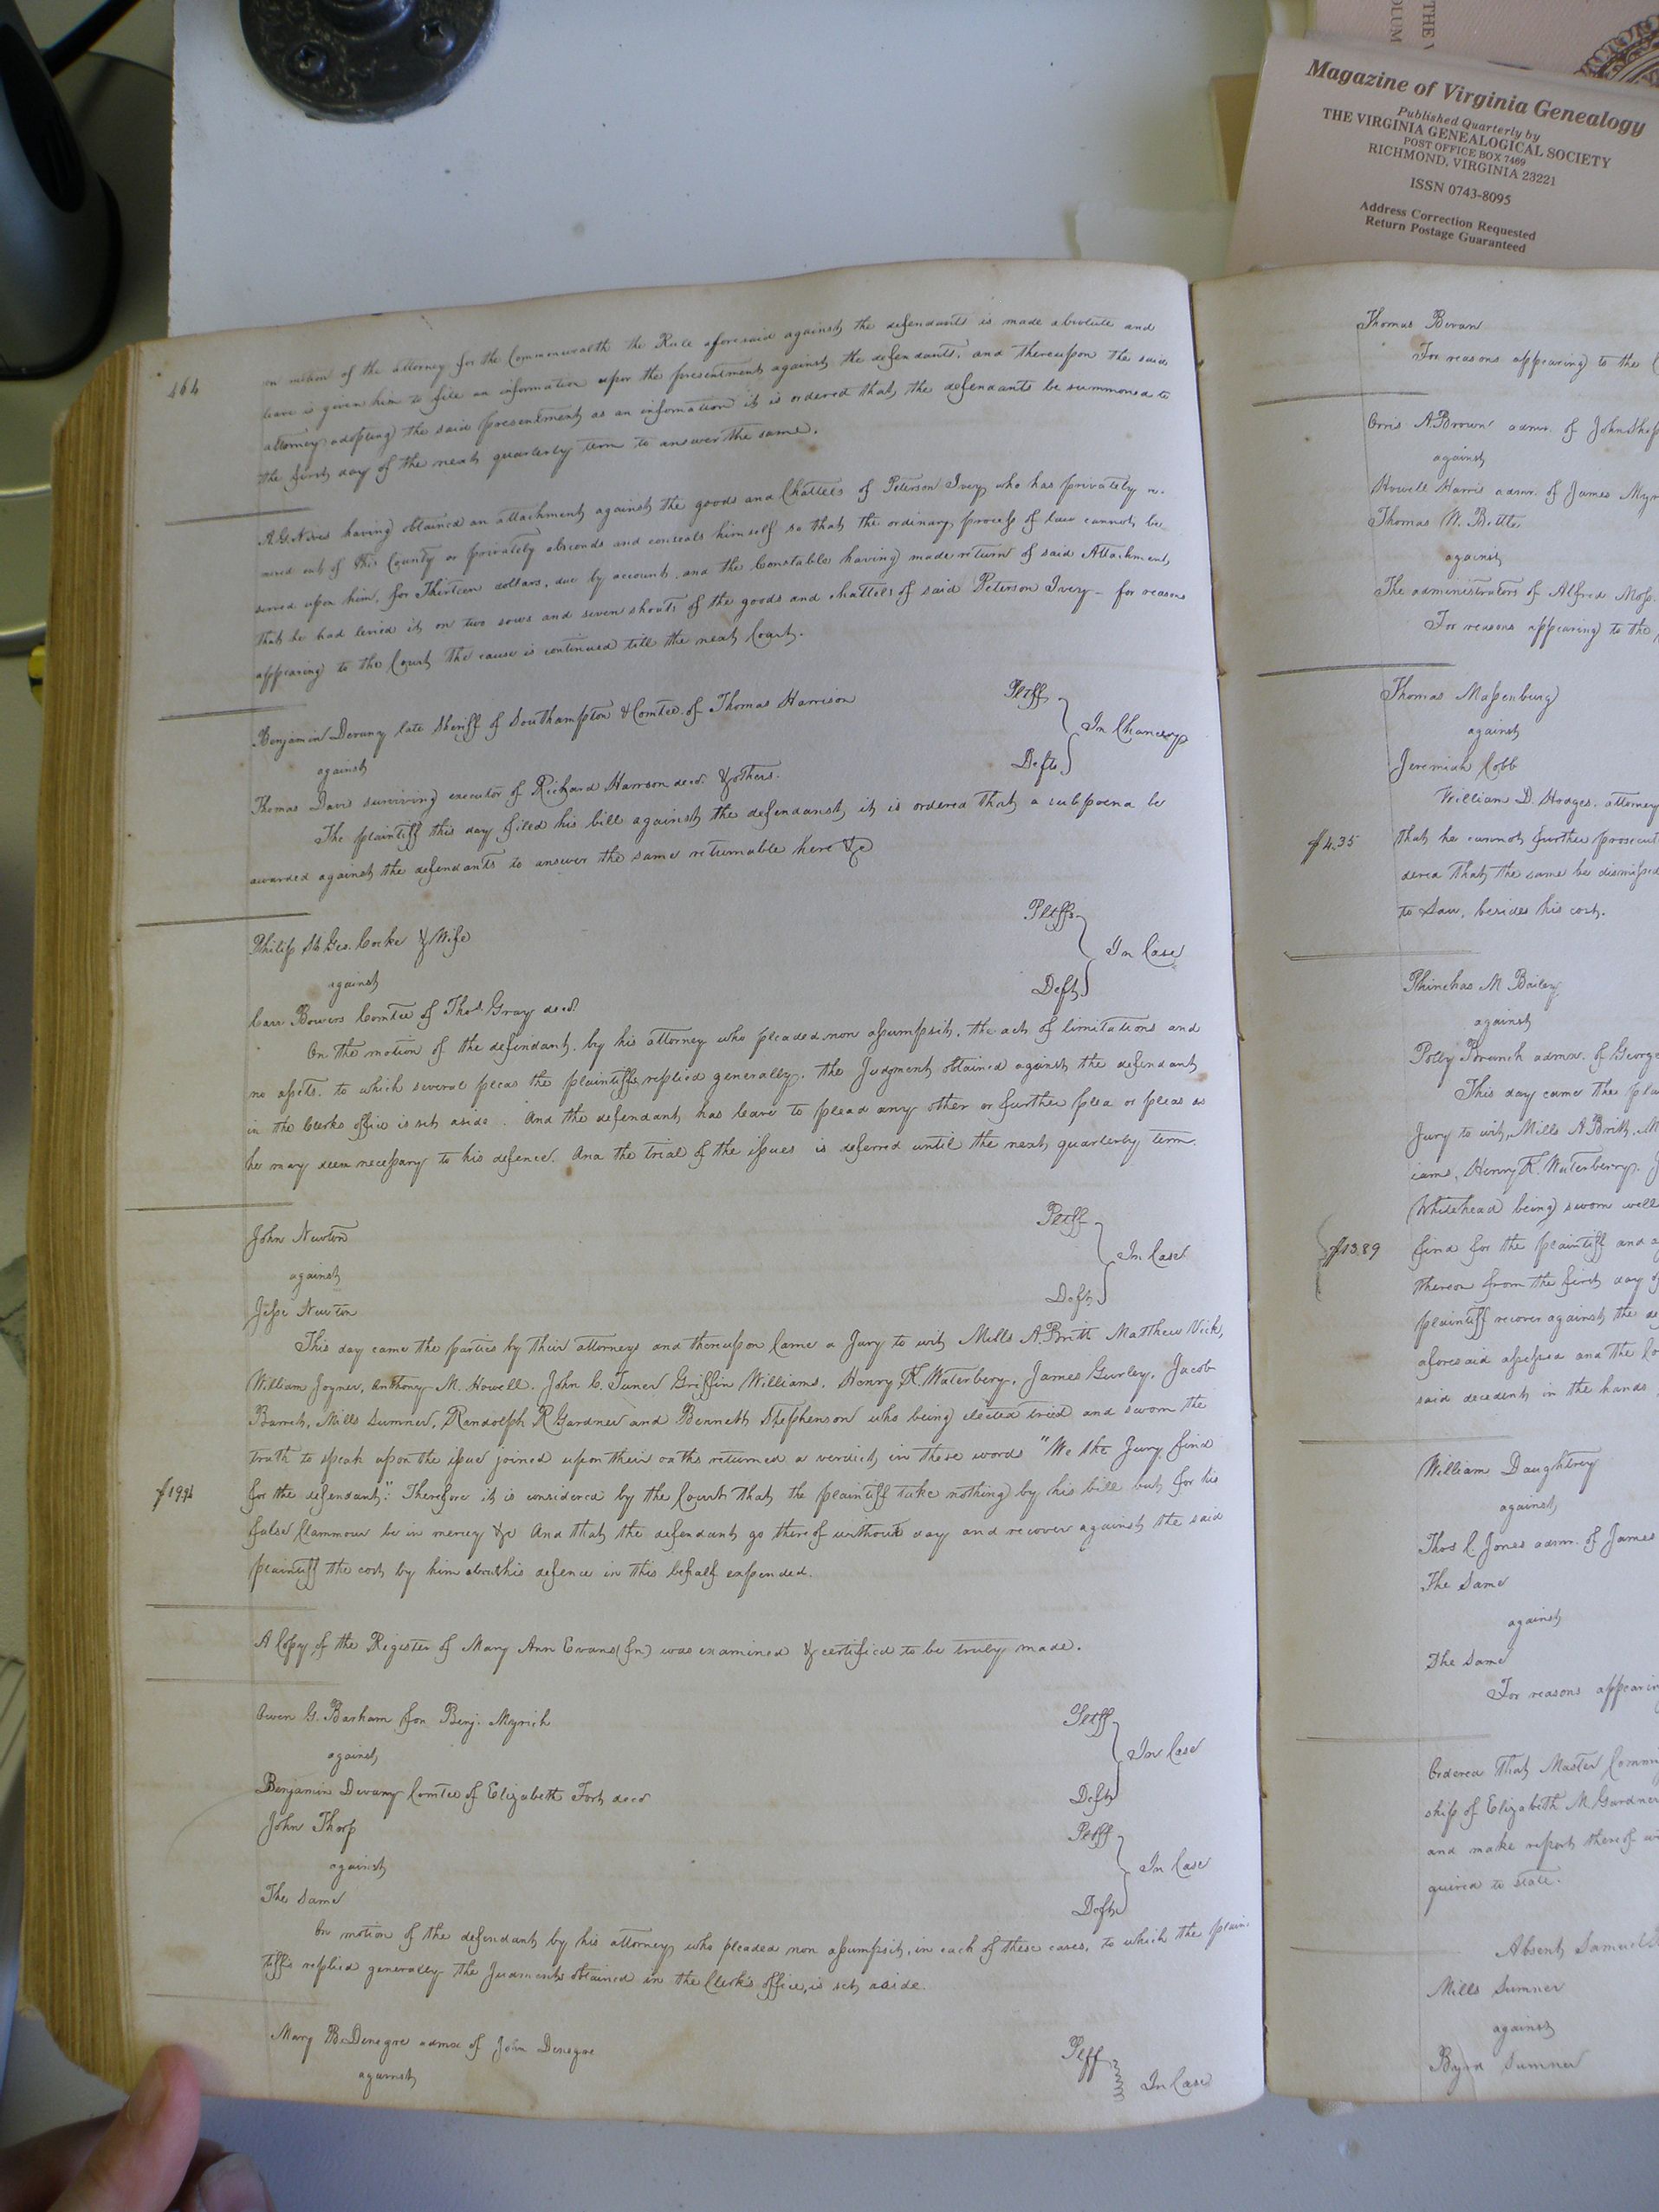 THE V
OLUM
Magazine of Virginia Genealogy
Published Quarterly by
THE VIRGINIA GENEALOGICAL SOCIETY
POST OFFICE BOX 7469
RICHMOND, VIRGINIA 23221
ISSN 0743-8095
Address Correction Requested
Return Postage Guaranteed
464
on motion of the attorney for the Commonwealth the Rule aforesaid against the defendants is made absolute and
leave is given him to file an information upon the presentment against the defendants, and thereupon the said
attorney adopting the said presentment as an information it is ordered that the defendants be summoned to
the first day of the next quarterly term to answer the same.
having obtained an attachment against the goods and Chattels of Peterson Ivey who has privately re-
moved out of this County or privately absconds and conseals himself so that the ordinary process of law cannot be
served upon him, for Thirteen dollars, due by account, and the Constable having made return of said Attachment,
that he had levied it on two sows and seven shoats of the goods and chattels of said Peterson Ivey – for reasons
appearing to the Court the cause is continued till the next Court.
Benjamin Devany late Sheriff of Southampton & Comtee. of Thomas Harrison Pltff
against In Chancery
Thomas surviving executor of Richard Harrison decd. & others. Defts
The plaintiff this day filed his bill against the defendanst it is ordered that a subpoena be
awarded against the defendants to answer the same returnable here &c
Philip St. Geo. Cocke & Wife Pltffs
against In Case
Carr Bowers Comtee of Thos. Gray decd. Deft
On the motion of the defendant, by his attorney who pleaded non assumpsit, the act of limitations and
no assets, to which several pleas the plaintiffs replied generally. The Judgment obtained against the defendant
in the Clerks office is set aside. And the defendant has leave to plead any other or further plea or pleas as
he may deem necessary to his defence. And the trial of the issues is deferred until the next quarterly term.
John Newton Pltff
against In Case
Jesse Newton Deft
This day came the parties by their attorneys and thereupon Came a Jury to wit Mills A. Britt Matthew Vick,
William Joyner, Anthony M. Howell. John C. Turner Griffin Williams. Henry K. Waterbery. James Gurley. Jacob
Barrett, Mills Sumner, Randolph R Gardner and Bennett Stephenson who being elected tried and sworn the
truth to speak upon the issue joined upon their oaths returned a verdict in these words "We the Jury find
for the defendant." Therefore it is considered by the Court that the plaintiff take nothing by his bill but for his
false Clammour be in mercy &c And that the defendant go thereof without day and recover against the said
plaintiff the cost by him about his defence in this behalf expended.
A Copy of the Register of Mary Ann Evans (fn) was examined & certified to be truly made.
Owen G. Barham for Benj. Myrick Pltff
against In Case
Benjamin Devany Comtee of Elizabeth Fort decd Deft
John Thorp Pltff
against In Case
The same Deft
On motion of the defendant by his attorney who pleaded non assumpsit, in each of these cases, to which the plain-
tiffs replied generally the Judments obtained in the Clerks office, is set aside.
Mary B. Denegre admx of John Denegre Pltff
against In Case
Thomas
For reasons appearing to the
Orris A. Browne admr. of John
against
Howell Harris admr. of James
Thomas W. Bittle
against
The administrators of Alfred Moss.
For reasons appearing to the
Thomas Massenburg
against
Jeremiah Cobb
William D. Hodges, attorney
$4.35 that he cannot further prosecut
dered that the same be dismissed
to Law, besides his cost.
Phinehas M Bailey
against
Polly Branch admx. of George
This day came the pla
Jury to wit, Mills A Britt, M
iams, Henry K. Waterberry. J
Whitehead being sworn well
$13.89 find for the plaintiff and a
thereon from the first day of
plaintiff recover against the de
aforesaid assessed and the Co
said decedent in the hands
William Daughtrey
against
Thos C. Jones admr. of James
The Same
against
The Same
For reasons appearing
Ordered that Master Commi
ship of Elizabeth M Gardner
and make report thereof wi
quired to state.
Absent Samuel
Mills Sumner
against
Sumner